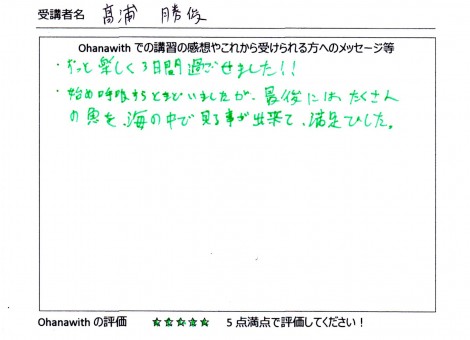 受講者名 髙浦 勝俊
Ohanawith での講習の感想やこれから受けられる方へのメッセージ等
・ずっと楽しく3日間過ごせました!!
・始め呼吸すらとまどいましたが、最後には、たくさん
の魚を、海の中で見る事が出来て、満足でした。
Ohanawith の評価 ★★★★★ 5 点満点で評価してください!